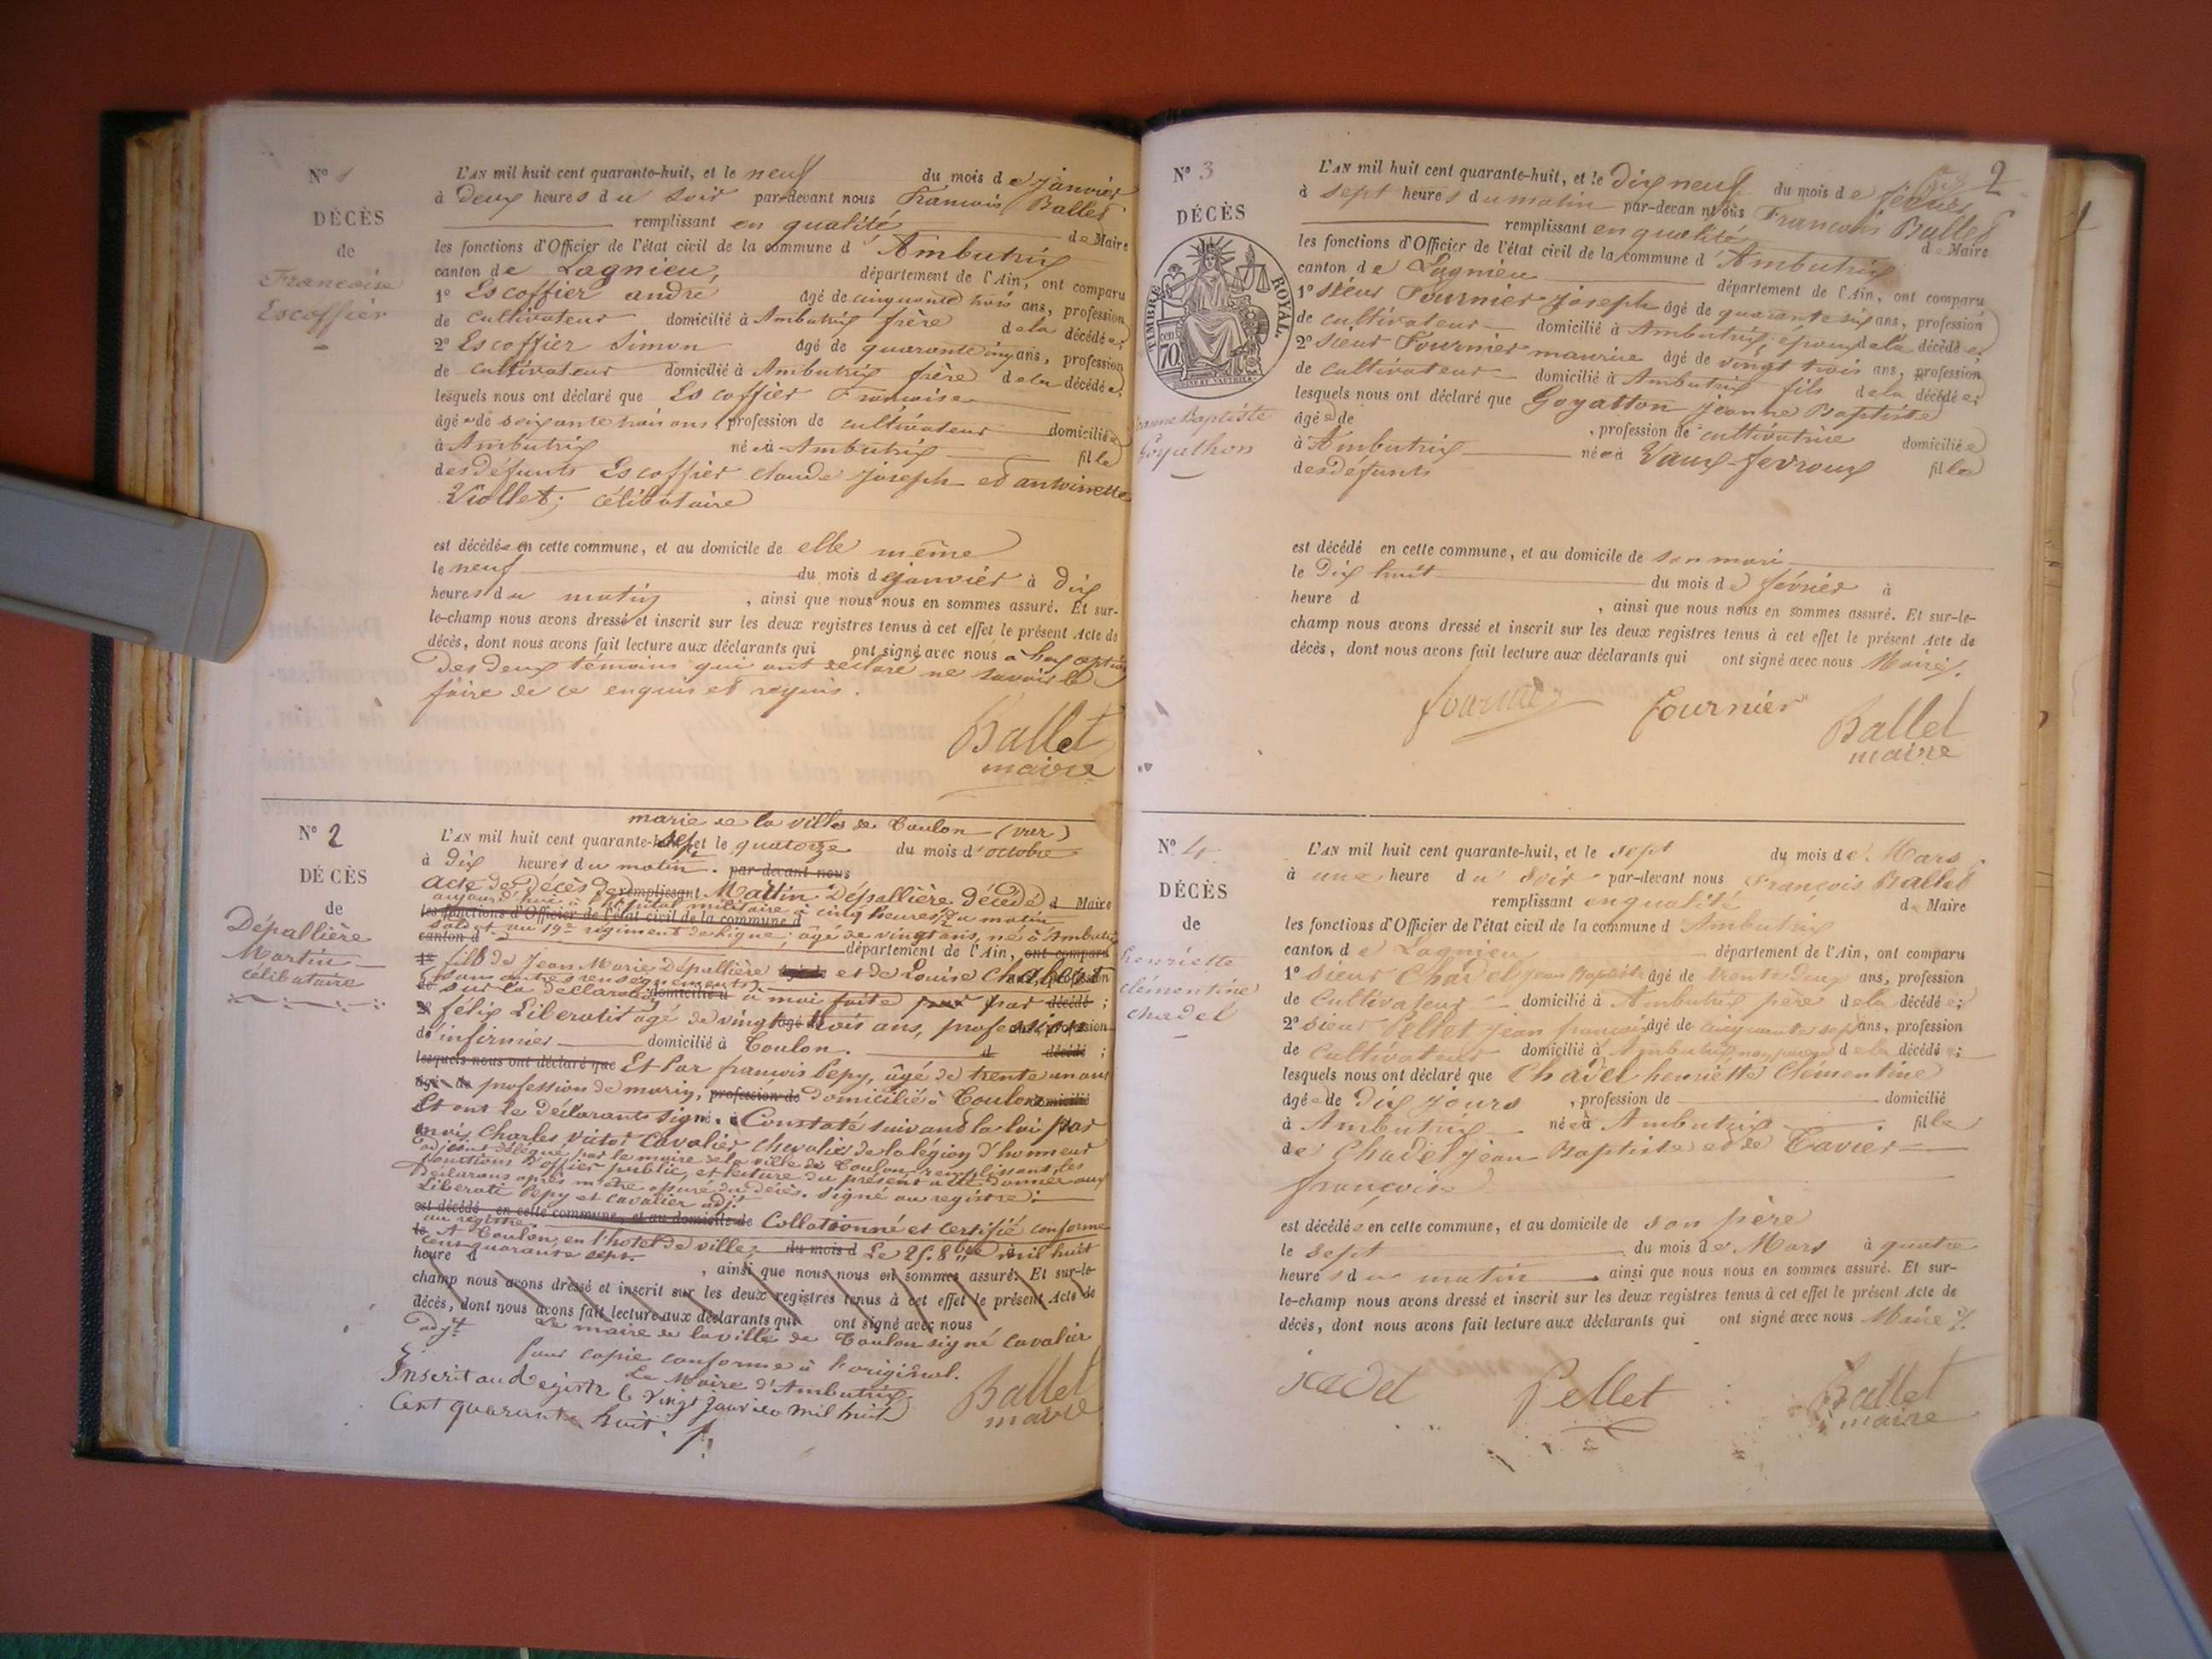 N° 1
DÉCÈS
de
Francoise
Escoffier
L'AN mil huit cent quarante-huit, et le neuf du mois de janvier
à Deux heures du soir par-devant nous Francois Ballet
remplissant en qualité de Maire
les fonctions d'Officier de l'état civil de la commune d'Ambutrix
canton de Lagnieu, département de l'Ain, ont comparu
1° Escoffier andré âgé de cinquante trois ans, profession
de cultivateur domicilié à Ambutrix frère de la décédée;
2° Escoffier Simon âgé de quarante cinq ans, profession
de cultivateur domicilié à Ambutrix frère de la décédée;
lesquels nous ont déclaré que Escoffier Francoise
âgée de soixante trois ans, profession de cultivateur domiciliée
à Ambutrix née à Ambutrix fille
des défunts Escoffier claude joseph et antoinette
Viollet; célibataire
est décédée en cette commune, et au domicile de elle même
le neuf du mois de janvier à dix
heures du matin, ainsi que nous nous en sommes assuré. Et sur-
le-champ nous avons dressé et inscrit sur les deux registres tenus à cet effet le présent Acte de
décès, dont nous avons fait lecture aux déclarants qui ont signé avec nous a l'exception
des deux témoins qui ont déclaré ne savoir le
faire de ce enquis et requis.
Ballet
maire
N° 2
DÉCÈS
de
Dépallière
Martin
célibataire
marie de la ville de Toulon (var)
L'AN mil huit cent quarante-sept et le quatorze du mois d'octobre
à dix heures du matin. par-devant nous
acte de décès de remplissant Martin Dépallière décédé d Maire
aujourd'hui à l'hôpital militaire à cinq heures 1/2 du matin
les fonctions d'Officier de l'état civil de la commune d
soldat au 19e régiment de ligne, âgé de vingt ans, né à Ambutrix
canton d département de l'Ain, ont comparu
1° fils de Jean Marie Dépallière et de Louise
sans autres renseignements
de sur la déclaration domicilié à à moi faite par décédé;
2° félix Liberati âgé de vingt trois ans, profession
d'infirmier domicilié à Toulon. d décédé;
lesquels nous ont déclaré que Et Par francois Pepy, âgé de trente un ans
âgé de profession de marin, profession de domicilié à Toulon domicilié
Et ont le déclarants signé. à Constaté suivant la loi par
moi Charles victor Cavalier chevalier de la légion d'honneur
adjoint délégué par le maire de la ville de Toulon remplissant les
fonctions d'officier public, et lecture du présent a été donnée aux
Déclarans après m'être assuré du décès. Signé au registre:
Liberati Pepy et Cavalier adj.t
est décédé en cette commune, et au domicile de Collationné et certifié conforme
au registre.
le A Toulon, en l'hotel de ville, du mois d Le 25. 8bre mil huit
cent quarante sept.
heure d , ainsi que nous nous en sommes assuré. Et sur-le-
champ nous avons dressé et inscrit sur les deux registres tenus à cet effet le présent Acte de
décès, dont nous avons fait lecture aux déclarants qui ont signé avec nous
adj.t Le maire de la ville de Toulon signé Cavalier
Pour copie conforme à l'original.
Le Maire d'Ambutrix
Inscrit au registre le vingt janvier mil huit
Cent quarante huit.
Ballet
maire
2
N° 3
DÉCÈS
de
TIMBRE ROYAL
70
Jeanne Baptiste
Goyathon
L'AN mil huit cent quarante-huit, et le dix neuf du mois de février
à sept heures du matin par-devant nous Francois Ballet
remplissant en qualité de Maire
les fonctions d'Officier de l'état civil de la commune d'Ambutrix
canton de Lagnieu département de l'Ain, ont comparu
1° sieur Fournier joseph âgé de quarante six ans, profession
de cultivateur domicilié à Ambutrix, époux de la décédée;
2° sieur Fournier maurice âgé de vingt trois ans, profession
de cultivateur domicilié à Ambutrix fils de la décédée;
lesquels nous ont déclaré que Goyatton jeanne Baptiste
âgée de , profession de cultivatrice domiciliée
à Ambutrix née à Vaux-fevroux fille
des défunts
est décédé en cette commune, et au domicile de son mari
le Dix huit du mois de février à
heure d , ainsi que nous nous en sommes assuré. Et sur-le-
champ nous avons dressé et inscrit sur les deux registres tenus à cet effet le présent Acte de
décès, dont nous avons fait lecture aux déclarants qui ont signé avec nous Maire.
fournier Fournier Ballet
maire
N° 4
DÉCÈS
de
henriette
clémentine
chadel
L'AN mil huit cent quarante-huit, et le sept du mois de Mars
à une heure du soir par-devant nous François Ballet
remplissant en qualité de Maire
les fonctions d'Officier de l'état civil de la commune d Ambutrix
canton de Lagnieu département de l'Ain, ont comparu
1° sieur Chadel jean Baptiste âgé de trente deux ans, profession
de Cultivateur domicilié à Ambutrix père de la décédée;
2° sieur Pellet jean françois âgé de cinquante sept ans, profession
de Cultivateur domicilié à Ambutrix non parent de la décédée;
lesquels nous ont déclaré que Chadel henriette Clementine
âgée de dix jours, profession de domicilié
à Ambutrix née à Ambutrix fille
de Chadel jean Baptiste et de Tavier
françoise
est décédée en cette commune, et au domicile de son père
le sept du mois de Mars à quatre
heures du matin, ainsi que nous nous en sommes assuré. Et sur-
le-champ nous avons dressé et inscrit sur les deux registres tenus à cet effet le présent Acte de
décès, dont nous avons fait lecture aux déclarants qui ont signé avec nous Maire
Pellet Ballet
maire